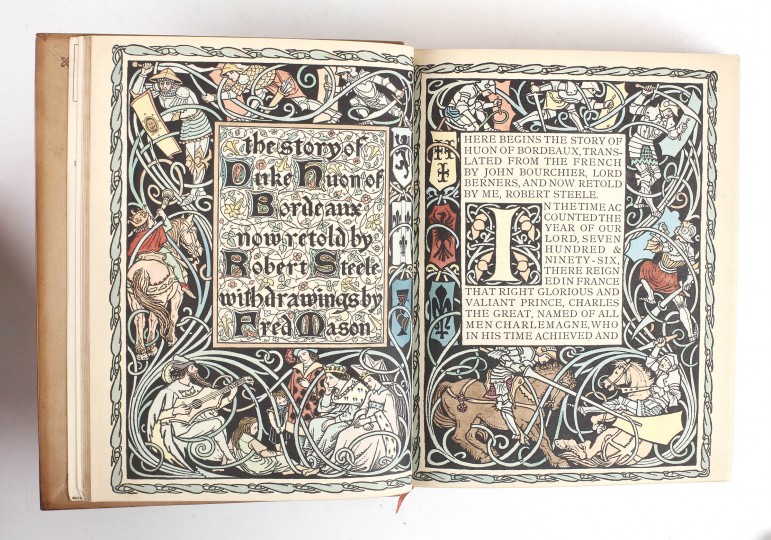 the story of
Duke Huon of
Bordeaux
now retold by
Robert Steele
with drawings by
Fred Mason
HERE BEGINS THE STORY OF
HUON OF BORDEAUX, TRANS-
LATED FROM THE FRENCH
BY JOHN BOURCHIER, LORD
BERNERS, AND NOW RETOLD
BY ME, ROBERT STEELE.
IN THE TIME AC
COUNTED THE
YEAR OF OUR
LORD, SEVEN
HUNDRED &
NINETY-SIX,
THERE REIGN
ED IN FRANCE
THAT RIGHT GLORIOUS AND
VALIANT PRINCE, CHARLES
THE GREAT, NAMED OF ALL
MEN CHARLEMAGNE, WHO
IN HIS TIME ACHIEVED AND